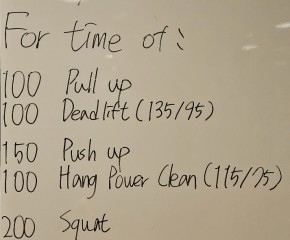 For time of:
100 Pull up
100 Deadlift (135/95)
150 Push up
100 Hang Power Clean (115/75)
200 Squat